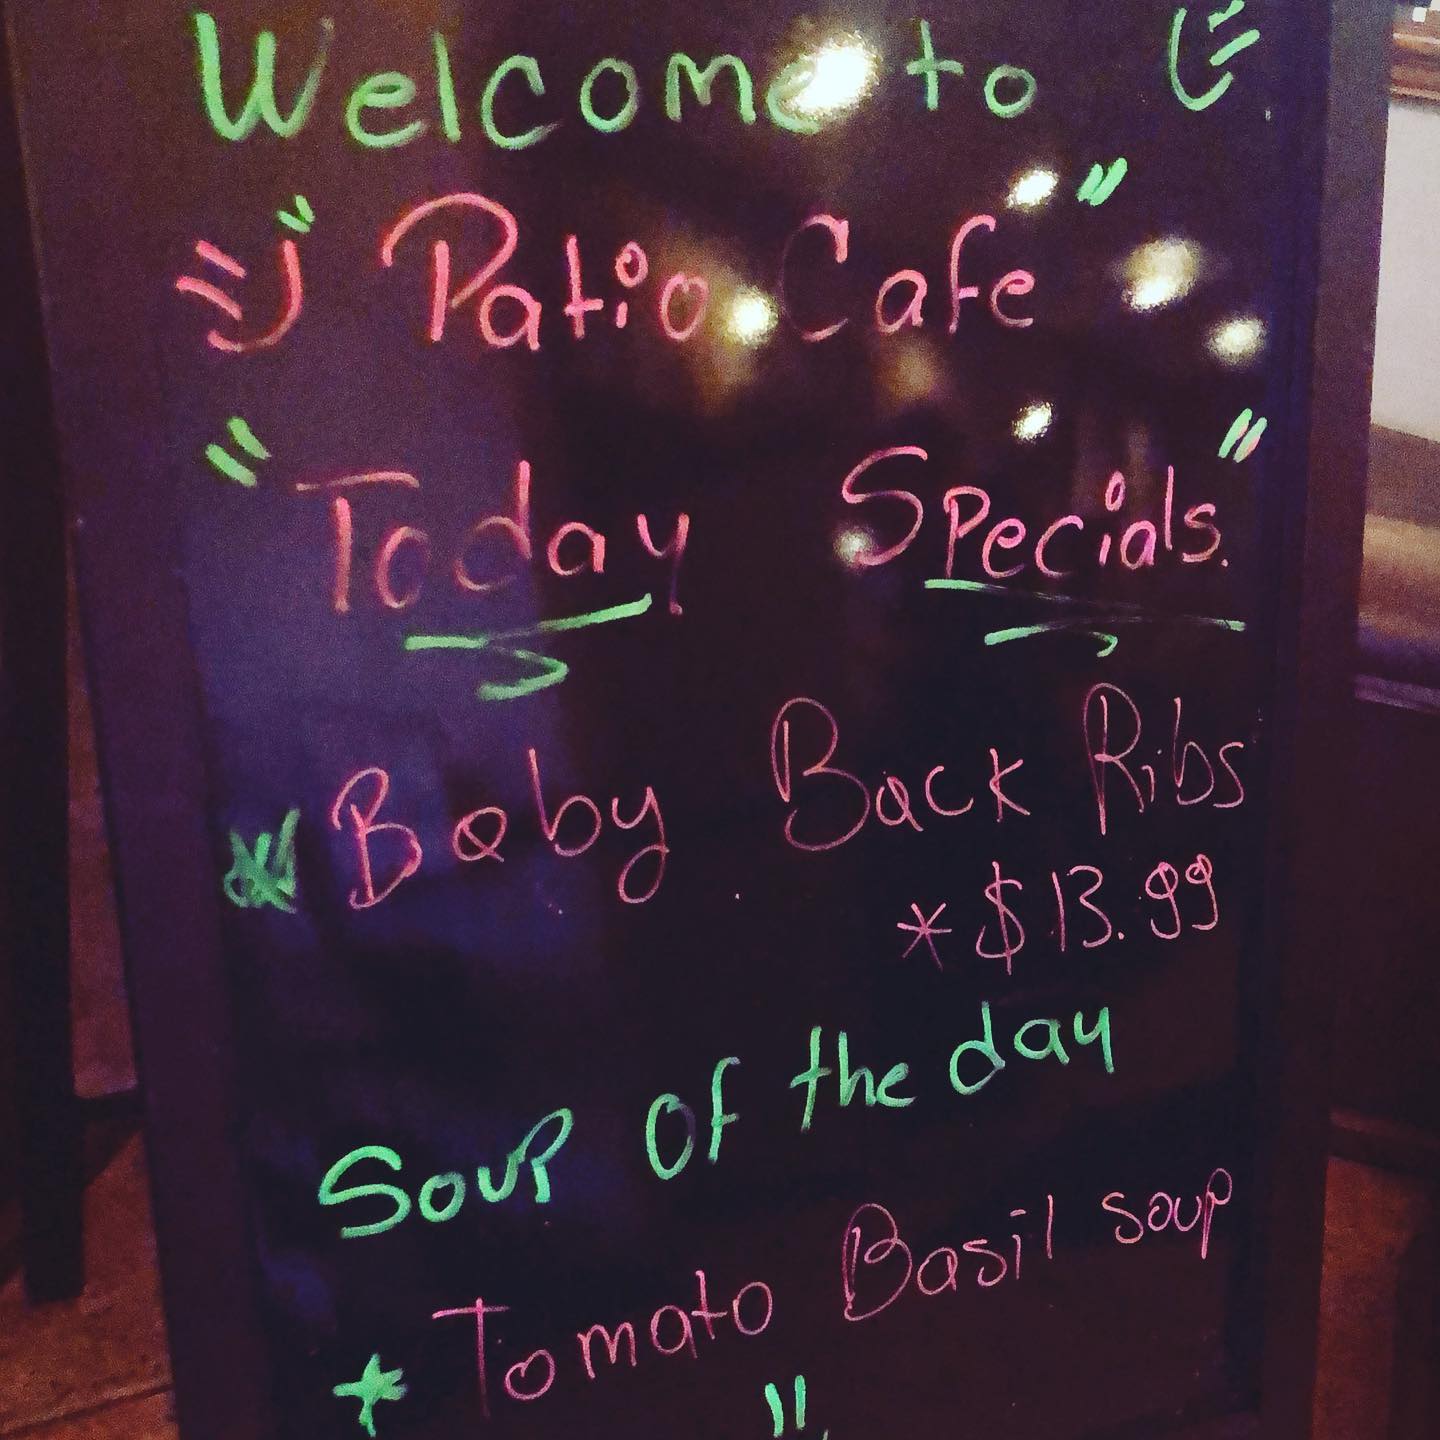 Welcome to
" Patio Cafe "
" Today Specials. "
Baby Back Ribs
* $13.99
Soup of the day
* Tomato Basil soup
"